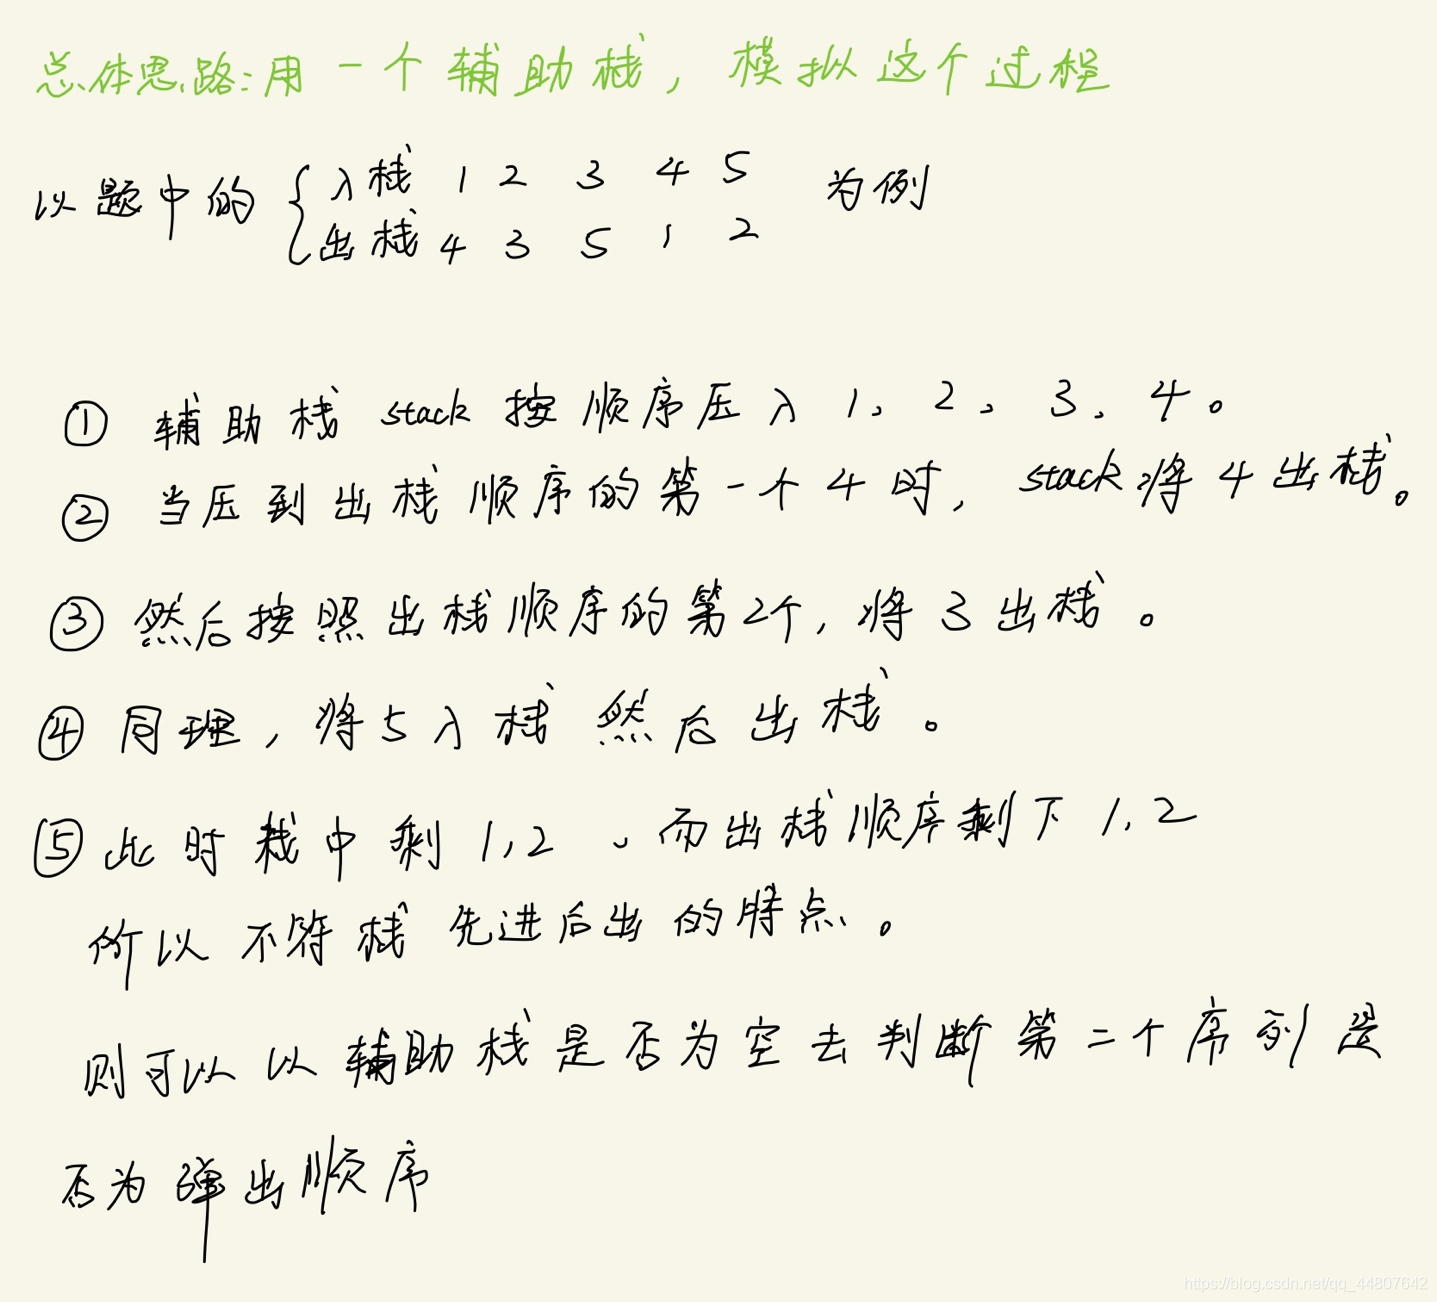 总体思路:用一个辅助栈,模拟这个过程
以题中的{入栈 1 2 3 4 5 为例
出栈 4 3 5 1 2
① 辅助栈 stack 按顺序压入 1、2、3、4。
② 当压到出栈顺序的第一个4时, stack将4出栈。
③ 然后按照出栈顺序的第2个,将3出栈。
④ 同理,将5入栈然后出栈。
⑤ 此时栈中剩1,2、而出栈顺序剩下1,2
所以不符栈先进后出的特点。
则可以以辅助栈是否为空去判断第二个序列是
否为弹出顺序
https://blog.csdn.net/qq_44807642